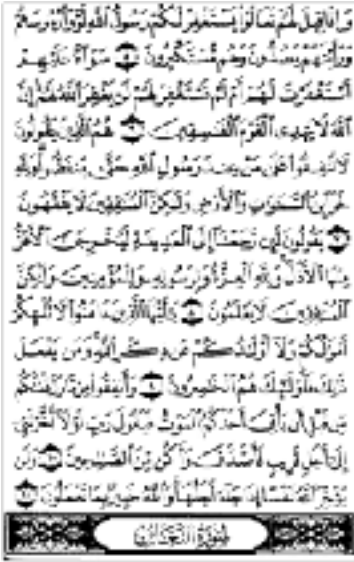 وَإِذَا قِيلَ لَهُمْ تَعَالَوْا يَسْتَغْفِرْ لَكُمْ رَسُولُ اللَّهِ لَوَّوْا رُءُوسَهُمْ
وَرَأَيْتَهُمْ يَصُدُّونَ وَهُم مُّسْتَكْبِرُونَ ۝ سَوَاءٌ عَلَيْهِمْ
أَسْتَغْفَرْتَ لَهُمْ أَمْ لَمْ تَسْتَغْفِرْ لَهُمْ لَن يَغْفِرَ اللَّهُ لَهُمْ إِنَّ
اللَّهَ لَا يَهْدِي الْقَوْمَ الْفَاسِقِينَ ۝ هُمُ الَّذِينَ يَقُولُونَ
لَا تُنفِقُوا عَلَىٰ مَنْ عِندَ رَسُولِ اللَّهِ حَتَّىٰ يَنفَضُّوا وَلِلَّهِ
خَزَائِنُ السَّمَاوَاتِ وَالْأَرْضِ وَلَٰكِنَّ الْمُنَافِقِينَ لَا يَفْقَهُونَ
۝ يَقُولُونَ لَئِن رَّجَعْنَا إِلَى الْمَدِينَةِ لَيُخْرِجَنَّ الْأَعَزُّ
مِنْهَا الْأَذَلَّ وَلِلَّهِ الْعِزَّةُ وَلِرَسُولِهِ وَلِلْمُؤْمِنِينَ وَلَٰكِنَّ
الْمُنَافِقِينَ لَا يَعْلَمُونَ ۝ يَا أَيُّهَا الَّذِينَ آمَنُوا لَا تُلْهِكُمْ
أَمْوَالُكُمْ وَلَا أَوْلَادُكُمْ عَن ذِكْرِ اللَّهِ وَمَن يَفْعَلْ
ذَٰلِكَ فَأُولَٰئِكَ هُمُ الْخَاسِرُونَ ۝ وَأَنفِقُوا مِن مَّا رَزَقْنَاكُم
مِّن قَبْلِ أَن يَأْتِيَ أَحَدَكُمُ الْمَوْتُ فَيَقُولَ رَبِّ لَوْلَا أَخَّرْتَنِي
إِلَىٰ أَجَلٍ قَرِيبٍ فَأَصَّدَّقَ وَأَكُن مِّنَ الصَّالِحِينَ ۝ وَلَن
يُؤَخِّرَ اللَّهُ نَفْسًا إِذَا جَاءَ أَجَلُهَا وَاللَّهُ خَبِيرٌ بِمَا تَعْمَلُونَ ۝
سُورَةُ التَّغَابُنِ